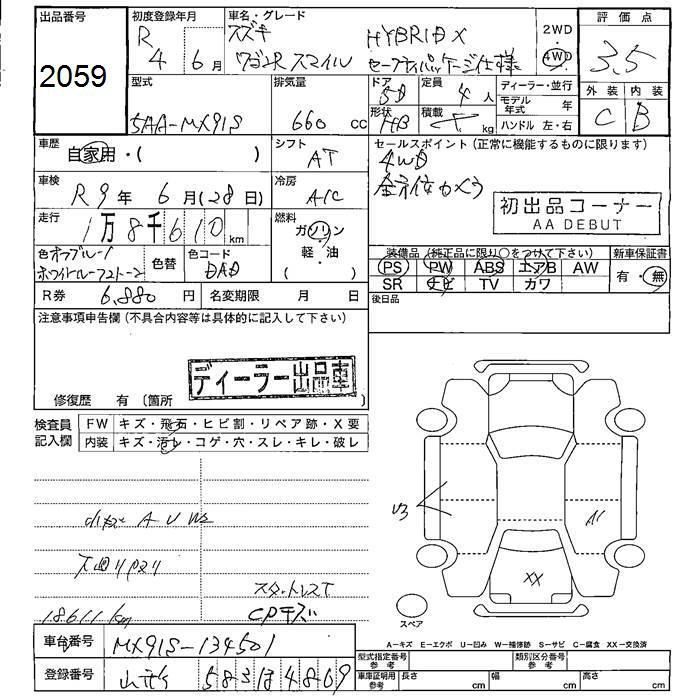 出品番号
2059
初度登録年月
R 4 6月
車名・グレード
スズキ HYBRID X
ワゴンR スマイル セーフティパッケージ仕様
2WD
4WD
評価点
3.5
外装 内装
C B
型式
5AA-MX91S
排気量
660 cc
ドア
5D
定員
4人
形状
HB
積載
kg
ディーラー・並行
モデル年式 年
ハンドル 左・右
車歴
自家用・( )
シフト
AT
車検
R 9年 6月(28日)
冷房
A/C
走行
1万8千610km
燃料
ガソリン
・軽・油
( )
色
色替
色コード
R券 6,880円
名変期限 月 日
セールスポイント(正常に機能するものに限ります)
4WD
全方位カメラ
初出品コーナー
AA DEBUT
装備品(純正品に限り○をつけて下さい)
PS PW ABS エアB AW
SR ナビ TV カワ
新車保証書
有・無
後日品
注意事項申告欄(不具合内容等は具体的に記入して下さい)
ディーラー出品車
修復歴 有(箇所 )
検査員記入欄
FW キズ・飛石・ヒビ割・リペア跡・X要
内装 キズ・汚レ・コゲ・穴・スレ・キレ・破レ
A U W2
18611km
U3
A1
XX
スペア
A-キズ E-エクボ U-凹み W-補修跡 S-サビ C-腐食 XX-交換済
車台番号 MX91S-134501
登録番号
型式指定番号 参考
類別区分番号 参考
車庫証明用 参考
長さ cm 幅 cm 高さ cm